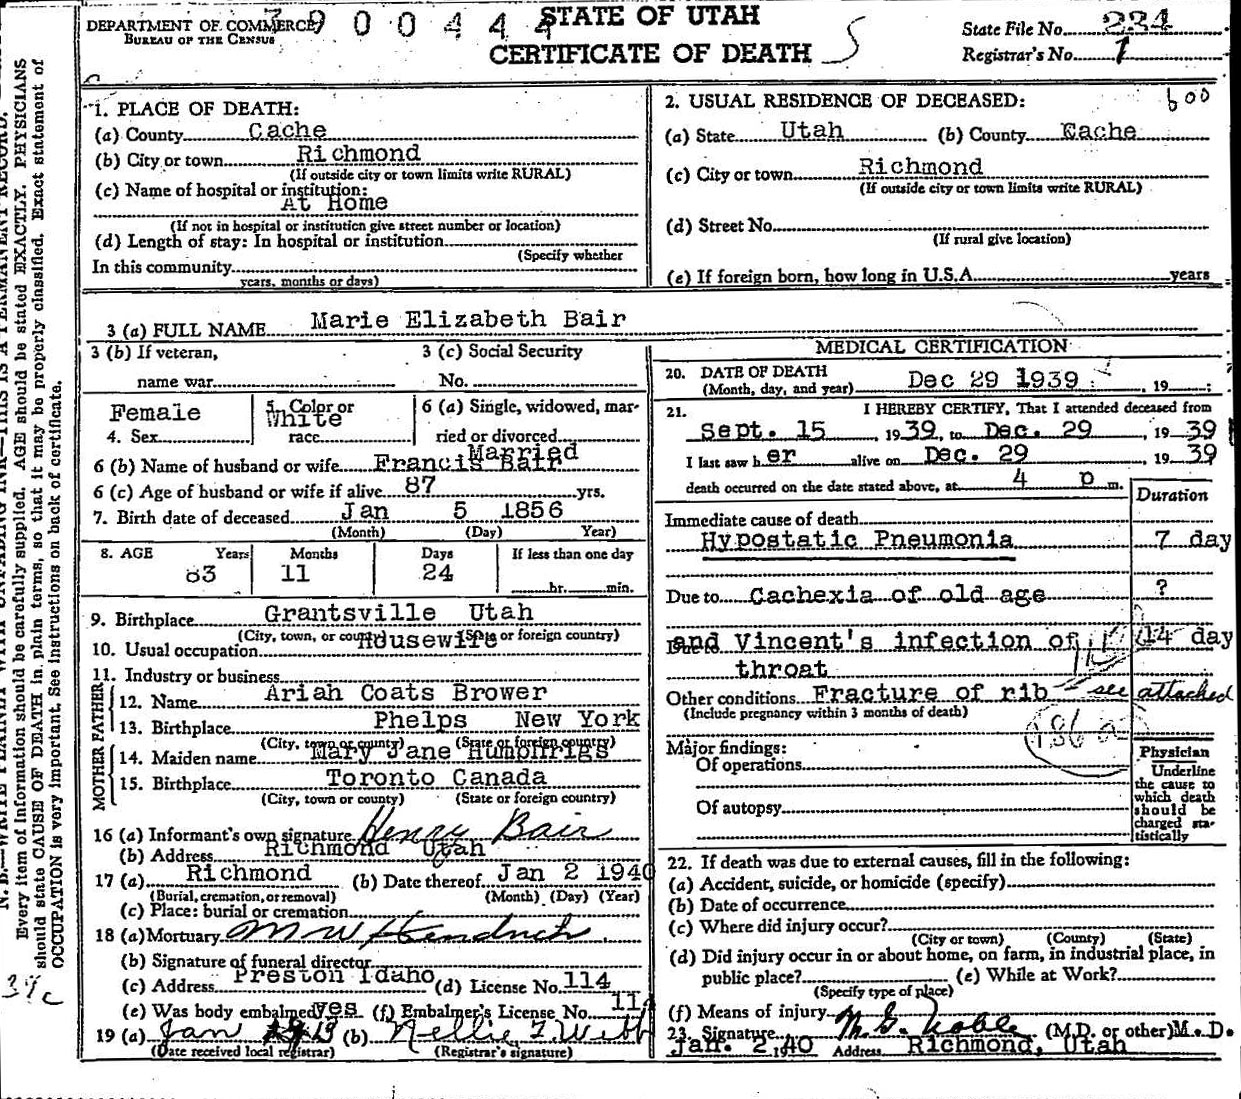 DEPARTMENT OF COMMERCE
BUREAU OF THE CENSUS
3900444
STATE OF UTAH
CERTIFICATE OF DEATH
State File No. 224
Registrar's No. 1
N. B.—WRITE PLAINLY WITH UNFADING INK—THIS IS A PERMANENT RECORD.
Every item of information should be carefully supplied. AGE should be stated EXACTLY. PHYSICIANS
should state CAUSE OF DEATH in plain terms, so that it may be properly classified. Exact statement of
OCCUPATION is very important. See instructions on back of certificate.
1. PLACE OF DEATH:
(a) County Cache
(b) City or town Richmond
(If outside city or town limits write RURAL)
(c) Name of hospital or institution:
At Home
(If not in hospital or institution give street number or location)
(d) Length of stay: In hospital or institution
(Specify whether
In this community
years, months or days)
2. USUAL RESIDENCE OF DECEASED: 600
(a) State Utah (b) County Cache
(c) City or town Richmond
(If outside city or town limits write RURAL)
(d) Street No.
(If rural give location)
(e) If foreign born, how long in U.S.A. years
3 (a) FULL NAME Marie Elizabeth Bair
3 (b) If veteran, name war
3 (c) Social Security No.
Female
4. Sex
5. Color or race White
6 (a) Single, widowed, married or divorced Married
6 (b) Name of husband or wife Francis Bair
6 (c) Age of husband or wife if alive 87 yrs.
7. Birth date of deceased Jan 5 1856
(Month) (Day) Year)
8. AGE Years Months Days If less than one day
83 11 24 hr. min.
9. Birthplace Grantsville Utah
(City, town, or county) (State or foreign country)
10. Usual occupation Housewife
11. Industry or business
FATHER
12. Name Ariah Coats Brower
13. Birthplace Phelps New York
(City, town or county) (State or foreign country)
MOTHER
14. Maiden name Mary Jane Humphrigs
15. Birthplace Toronto Canada
(City, town or county) (State or foreign country)
16 (a) Informant's own signature Henry Bair
(b) Address Richmond Utah
17 (a) Richmond (b) Date thereof Jan 2 1940
(Burial, cremation, or removal) (Month) (Day) (Year)
(c) Place: burial or cremation
18 (a) Mortuary M W Hendrick
(b) Signature of funeral director
(c) Address Preston Idaho (d) License No. 114
(e) Was body embalmed yes (f) Embalmer's License No. 114
19 (a) Jan (b) Nellie T. Webb
(Date received local registrar) (Registrar's signature)
MEDICAL CERTIFICATION
20. DATE OF DEATH
(Month, day, and year) Dec 29 1939, 19 ;
21. I HEREBY CERTIFY, That I attended deceased from
Sept. 15, 1939, to Dec. 29, 1939
I last saw her alive on Dec. 29 1939
death occurred on the date stated above, at 4 p m.
Duration
Immediate cause of death
Hypostatic Pneumonia 7 day
Due to Cachexia of old age ?
Due to and Vincent's infection of 14 day
throat
Other conditions Fracture of rib - see attached
(Include pregnancy within 3 months of death)
186 a
Major findings:
Of operations
Of autopsy
Physician
Underline
the cause to
which death
should be
charged sta-
tistically
22. If death was due to external causes, fill in the following:
(a) Accident, suicide, or homicide (specify)
(b) Date of occurrence
(c) Where did injury occur?
(City or town) (County) (State)
(d) Did injury occur in or about home, on farm, in industrial place, in
public place? (e) While at Work?
(Specify type of place)
(f) Means of injury
23. Signature M. G. Noble (M.D. or other) M. D.
Jan. 2 1940 Address Richmond, Utah